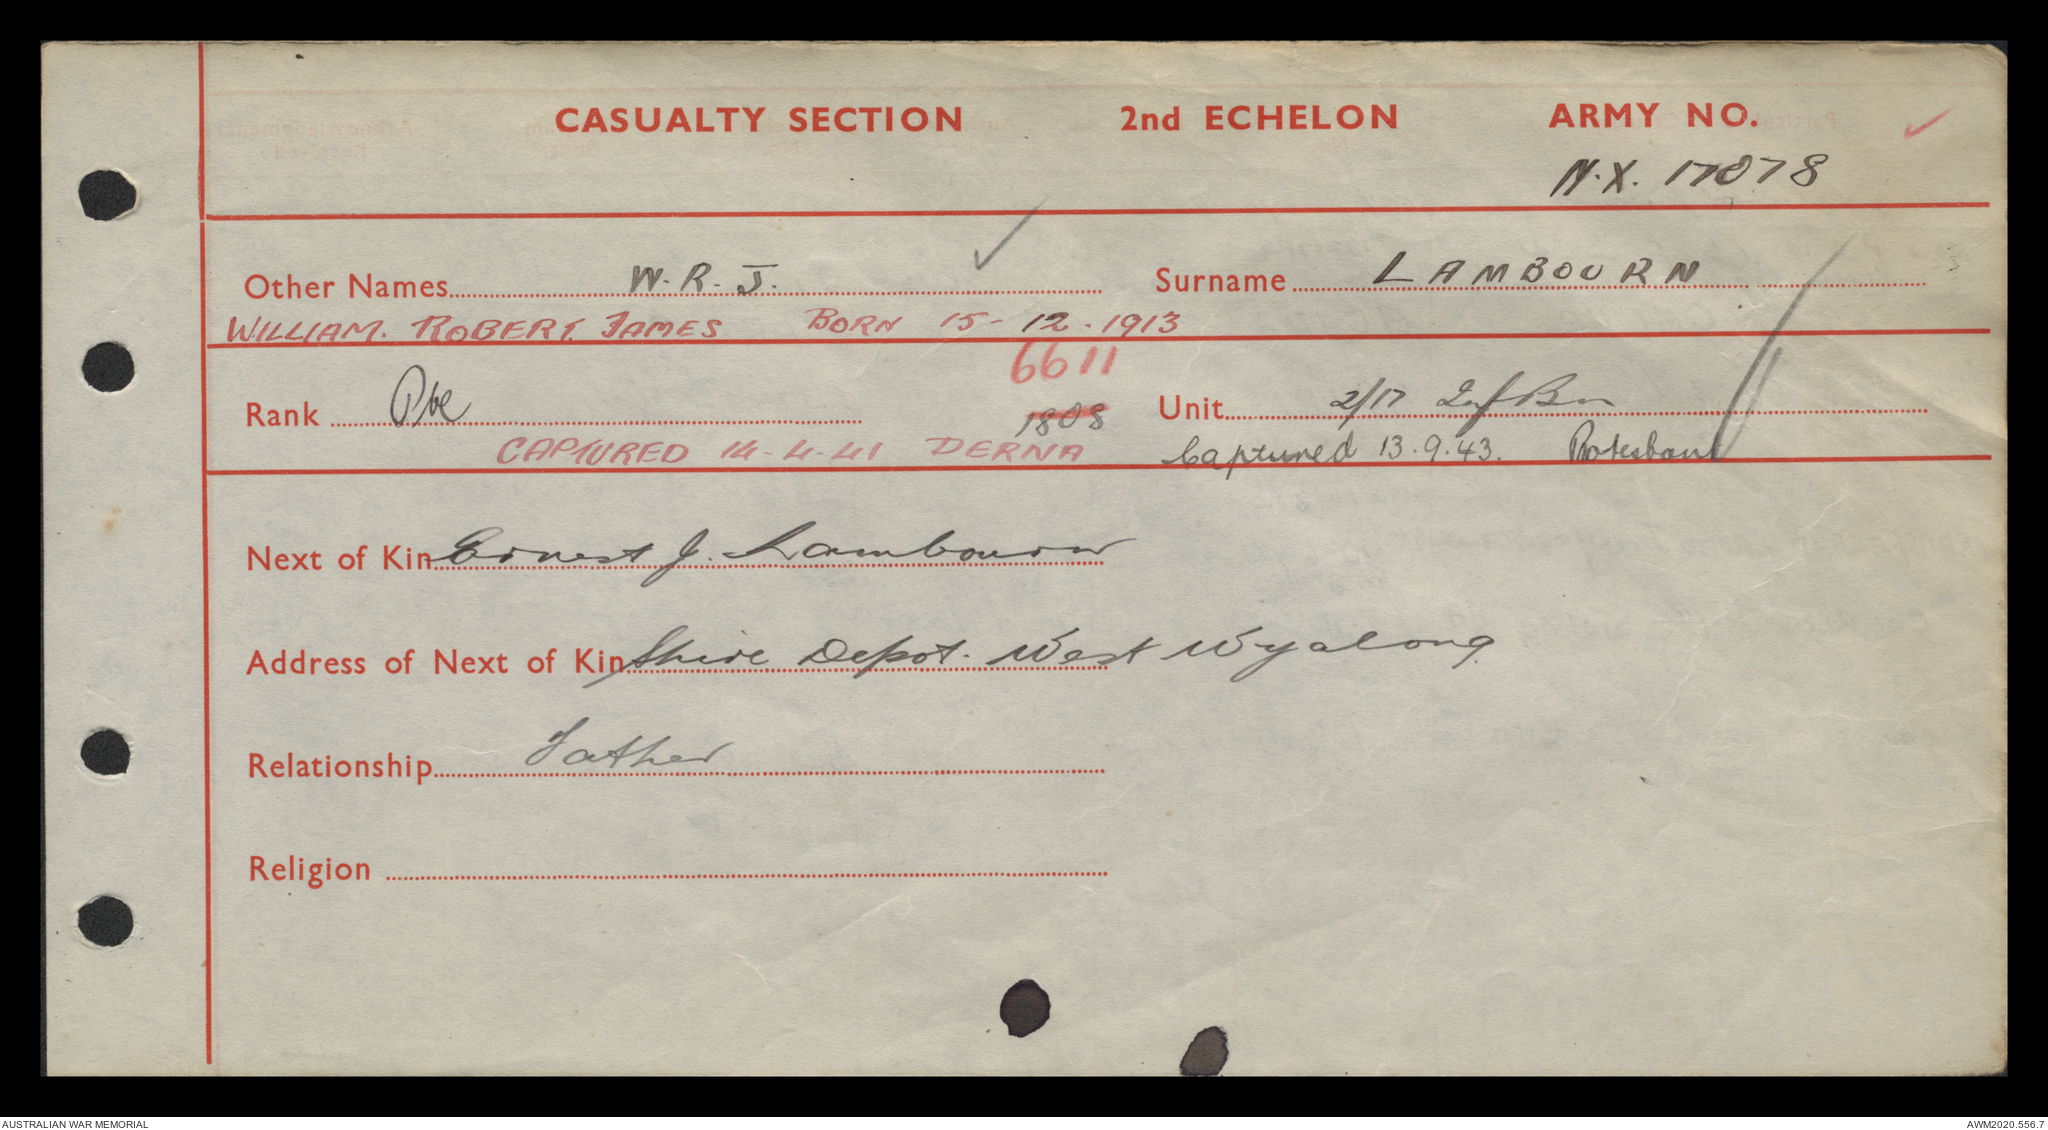 CASUALTY SECTION 2nd ECHELON ARMY NO.
N.X. 17878
Other Names W.R.J. Surname LAMBOURN
WILLIAM. ROBERT. JAMES BORN 15-12.1913
6611
Rank Pte 1808 Unit 2/17 Inf Bn
CAPTURED 14-4-41 DERNA Captured 13.9.43.
Next of Kin Ernest J. Lambourn
Address of Next of Kin Shire Depot. West Wyalong
Relationship Father
Religion
AUSTRALIAN WAR MEMORIAL AWM2020.556.7